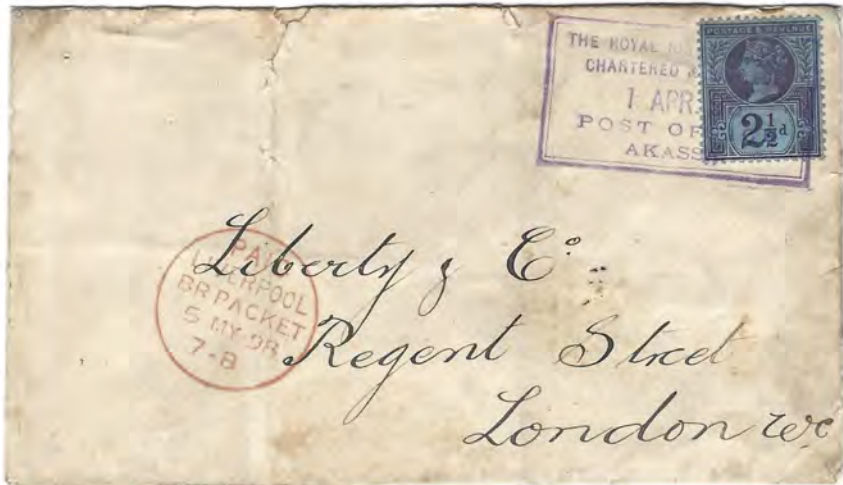 THE ROYAL
CHARTERED
1 APR
POST OF
AKASS
POSTAGE & REVENUE
2½d
PAID
LIVERPOOL
BR PACKET
5 MY 98
7-8
Liberty & Co
Regent Street
London WC